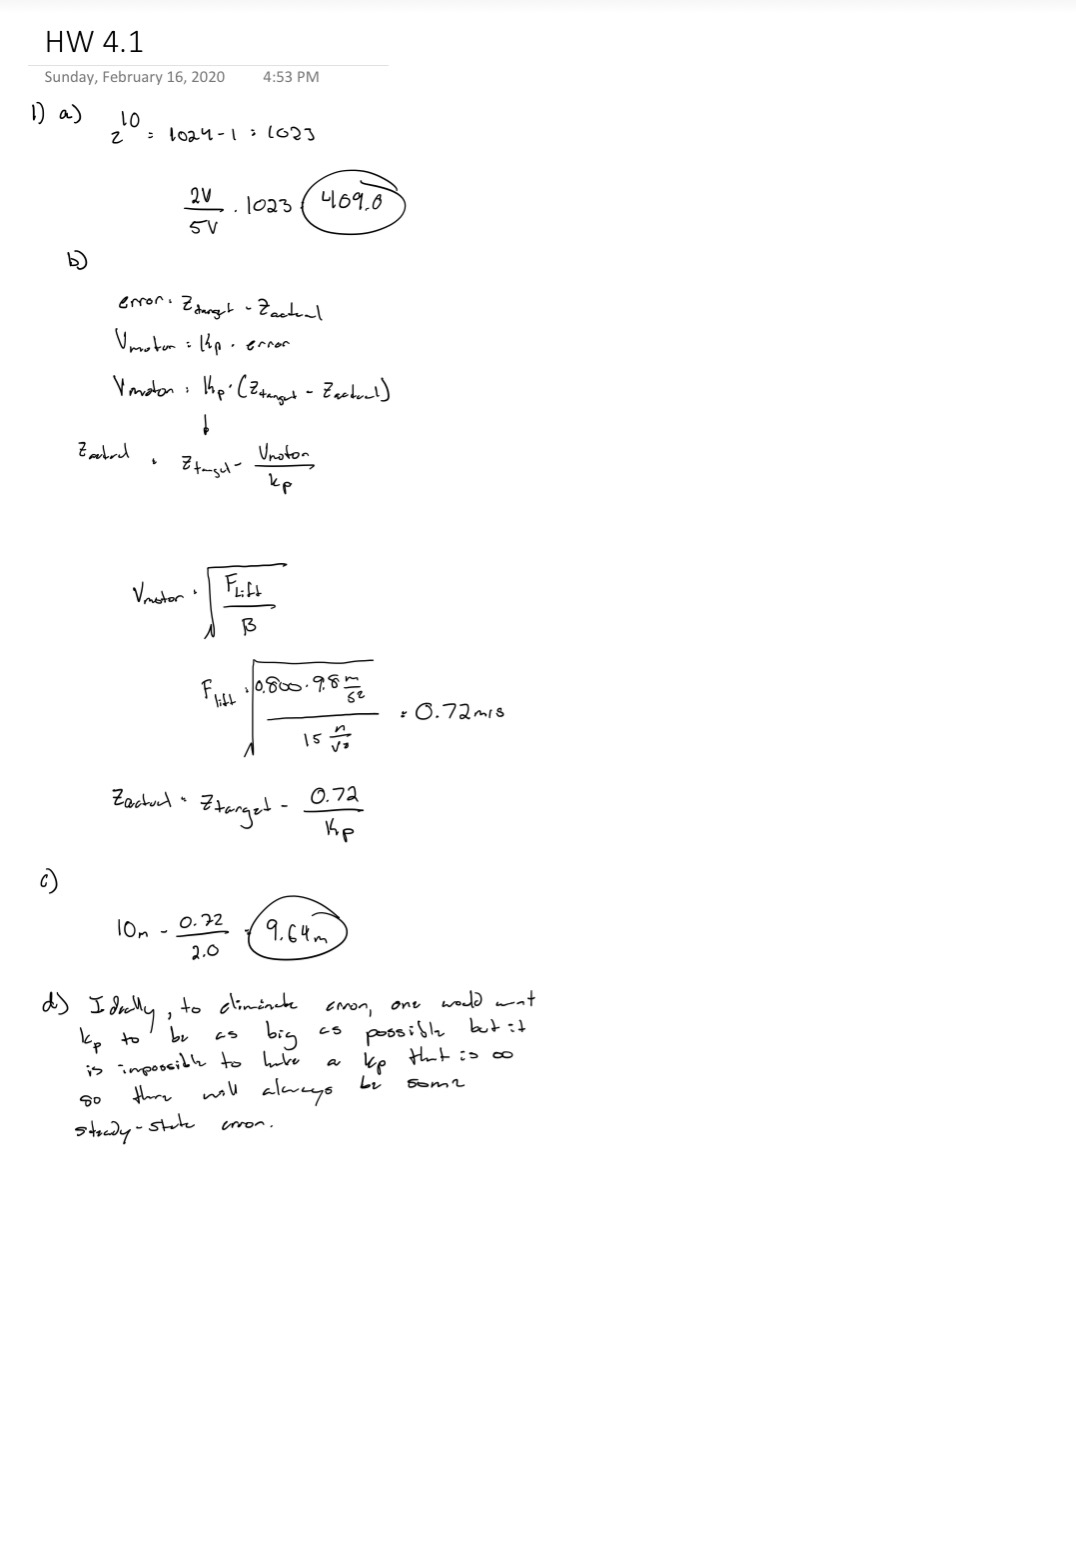 HW 4.1
Sunday, February 16, 2020 4:53 PM
1) a) 2^10 = 1024 - 1 = 1023
2V / 5V · 1023 = 409.0
b)
error = Ztarget - Zactual
Vmotor = Kp · error
Vmotor = Kp · (Ztarget - Zactual)
↓
Zactual = Ztarget - Vmotor / Kp
Vmotor = √(FLift / β)
Flift = √(0.800 · 9.8 m/s² / 15 n/v²) = 0.72 m/s
Zactual = Ztarget - 0.72 / Kp
c)
10m - 0.72 / 2.0 = 9.64m
d) Ideally, to eliminate error, one would want
Kp to be as big as possible but it
is impossible to have a kp that is ∞
so there will always be some
steady-state error.